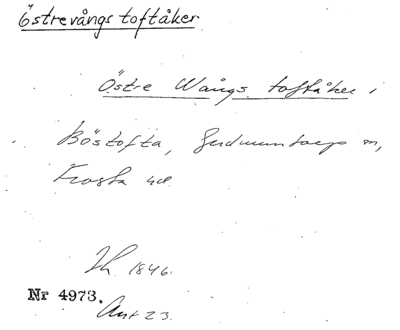 östrevångs toftåker
Östre Wångs toftåker i
Böstofta, Gudmuntorps m,
Frosta hd.
Lh. 1846.
Nr 4973.
Akt 23.